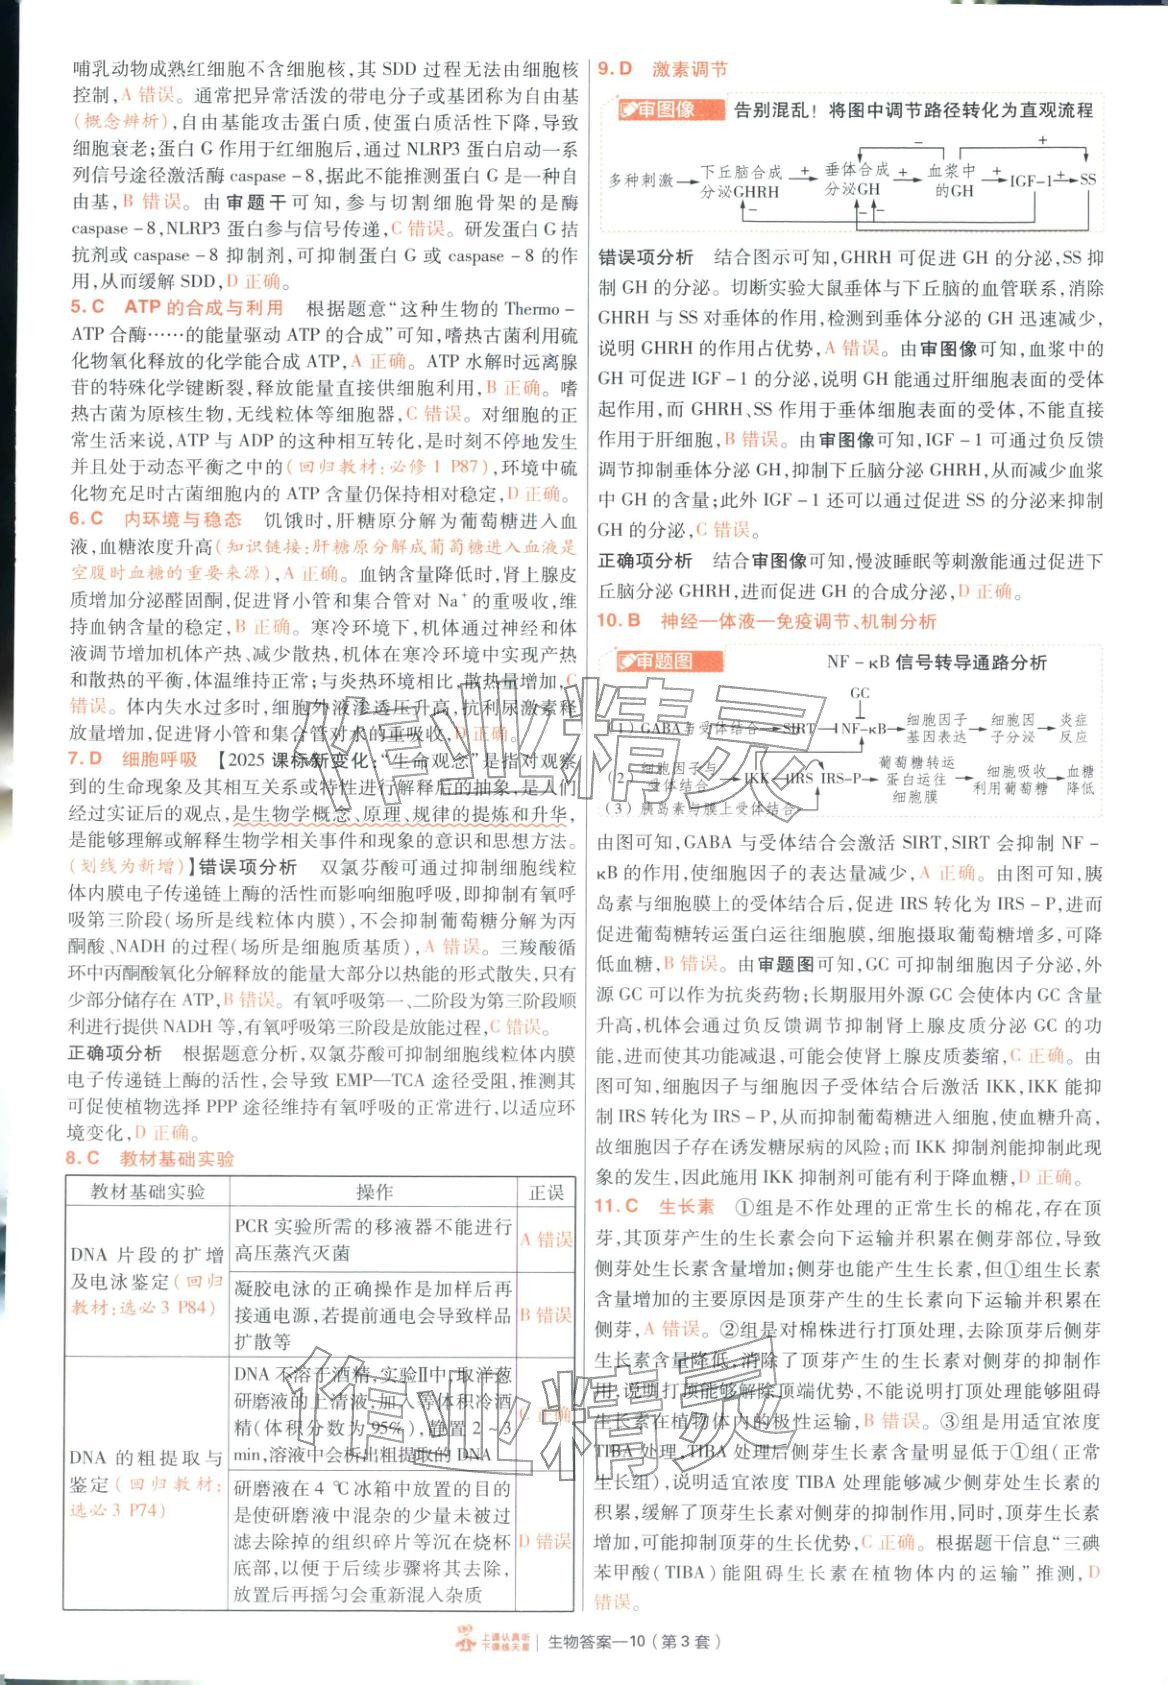 哺乳动物成熟红细胞不含细胞核,其 SDD 过程无法由细胞核
控制,A 错误。通常把异常活泼的带电分子或基团称为自由基
(概念辨析),自由基能攻击蛋白质,使蛋白质活性下降,导致
细胞衰老;蛋白 G 作用于红细胞后,通过 NLRP3 蛋白启动一系
列信号途径激活酶 caspase-8,据此不能推测蛋白 G 是一种自
由基,B 错误。由审题干可知,参与切割细胞骨架的是酶
caspase-8,NLRP3 蛋白参与信号传递,C 错误。研发蛋白 G 拮
抗剂或 caspase-8 抑制剂,可抑制蛋白 G 或 caspase-8 的作
用,从而缓解 SDD,D 正确。
5.C ATP 的合成与利用 根据题意“这种生物的 Thermo-
ATP 合酶……的能量驱动 ATP 的合成”可知,嗜热古菌利用硫
化物氧化释放的化学能合成 ATP,A 正确。ATP 水解时远离腺
苷的特殊化学键断裂,释放能量直接供细胞利用,B 正确。嗜
热古菌为原核生物,无线粒体等细胞器,C 错误。对细胞的正
常生活来说,ATP 与 ADP 的这种相互转化,是时刻不停地发生
并且处于动态平衡之中的(回归教材:必修 1 P87),环境中硫
化物充足时古菌细胞内的 ATP 含量仍保持相对稳定,D 正确。
6.C 内环境与稳态 饥饿时,肝糖原分解为葡萄糖进入血
液,血糖浓度升高(知识链接:肝糖原分解成葡萄糖进入血液是
空腹时血糖的重要来源),A 正确。血钠含量降低时,肾上腺皮
质增加分泌醛固酮,促进肾小管和集合管对 Na⁺ 的重吸收,维
持血钠含量的稳定,B 正确。寒冷环境下,机体通过神经和体
液调节增加机体产热、减少散热,机体在寒冷环境中实现产热
和散热的平衡,体温维持正常;与炎热环境相比,散热量增加,C
错误。体内失水过多时,细胞外液渗透压升高,抗利尿激素释
放量增加,促进肾小管和集合管对水的重吸收,D 正确。
7.D 细胞呼吸 【2025 课标新变化:“生命观念”是指对观察
到的生命现象及其相互关系或特性进行解释后的抽象,是人们
经过实证后的观点,是生物学概念、原理、规律的提炼和升华,
是能够理解或解释生物学相关事件和现象的意识和思想方法。
(划线为新增)】错误项分析 双氯芬酸可通过抑制细胞线粒
体内膜电子传递链上酶的活性而影响细胞呼吸,即抑制有氧呼
吸第三阶段(场所是线粒体内膜),不会抑制葡萄糖分解为丙
酮酸、NADH 的过程(场所是细胞质基质),A 错误。三羧酸循
环中丙酮酸氧化分解释放的能量大部分以热能的形式散失,只有
少部分储存在 ATP,B 错误。有氧呼吸第一、二阶段为第三阶段顺
利进行提供 NADH 等,有氧呼吸第三阶段是放能过程,C 错误。
正确项分析 根据题意分析,双氯芬酸可抑制细胞线粒体内膜
电子传递链上酶的活性,会导致 EMP—TCA 途径受阻,推测其
可促使植物选择 PPP 途径维持有氧呼吸的正常进行,以适应环
境变化,D 正确。
8.C 教材基础实验
教材基础实验 操作 正误
DNA 片段的扩增
及电泳鉴定(回归
教材:选必 3 P84)
PCR 实验所需的移液器不能进行
高压蒸汽灭菌
A 错误
凝胶电泳的正确操作是加样后再
接通电源,若提前通电会导致样品
扩散等
B 错误
DNA 的粗提取与
鉴定(回归教材:
选必 3 P74)
DNA 不溶于酒精,实验Ⅱ中,取洋葱
研磨液的上清液,加入等体积冷酒
精(体积分数为 95%),静置 2~3
min,溶液中会析出粗提取的 DNA
C 正确
研磨液在 4 ℃冰箱中放置的目的
是使研磨液中混杂的少量未被过
滤去除掉的组织碎片等沉在烧杯
底部,以便于后续步骤将其去除,
放置后再摇匀会重新混入杂质
D 错误
9.D 激素调节
审图像 告别混乱!将图中调节路径转化为直观流程
多种刺激 下丘脑合成分泌GHRH + 垂体合成分泌GH + 血浆中的GH + IGF-1 + SS
错误项分析 结合图示可知,GHRH 可促进 GH 的分泌,SS 抑
制 GH 的分泌。切断实验大鼠垂体与下丘脑的血管联系,消除
GHRH 与 SS 对垂体的作用,检测到垂体分泌的 GH 迅速减少,
说明 GHRH 的作用占优势,A 错误。由审图像可知,血浆中的
GH 可促进 IGF-1 的分泌,说明 GH 能通过肝细胞表面的受体
起作用,而 GHRH、SS 作用于垂体细胞表面的受体,不能直接
作用于肝细胞,B 错误。由审图像可知,IGF-1 可通过负反馈
调节抑制垂体分泌 GH,抑制下丘脑分泌 GHRH,从而减少血浆
中 GH 的含量;此外 IGF-1 还可以通过促进 SS 的分泌来抑制
GH 的分泌,C 错误。
正确项分析 结合审图像可知,慢波睡眠等刺激能通过促进下
丘脑分泌 GHRH,进而促进 GH 的合成分泌,D 正确。
10.B 神经—体液—免疫调节、机制分析
审题图 NF-κB 信号转导通路分析
GC
(1)GABA与受体结合 SIRT NF-κB 细胞因子基因表达 细胞因子分泌 炎症反应
(2)细胞因子与受体结合 IKK IRS IRS-P 葡萄糖转运蛋白运往细胞膜 细胞吸收利用葡萄糖 血糖降低
(3)胰岛素与膜上受体结合
由图可知,GABA 与受体结合会激活 SIRT,SIRT 会抑制 NF-
κB 的作用,使细胞因子的表达量减少,A 正确。由图可知,胰
岛素与细胞膜上的受体结合后,促进 IRS 转化为 IRS-P,进而
促进葡萄糖转运蛋白运往细胞膜,细胞摄取葡萄糖增多,可降
低血糖,B 错误。由审题图可知,GC 可抑制细胞因子分泌,外
源 GC 可以作为抗炎药物;长期服用外源 GC 会使体内 GC 含量
升高,机体会通过负反馈调节抑制肾上腺皮质分泌 GC 的功
能,进而使其功能减退,可能会使肾上腺皮质萎缩,C 正确。由
图可知,细胞因子与细胞因子受体结合后激活 IKK,IKK 能抑
制 IRS 转化为 IRS-P,从而抑制葡萄糖进入细胞,使血糖升高,
故细胞因子存在诱发糖尿病的风险;而 IKK 抑制剂能抑制此现
象的发生,因此施用 IKK 抑制剂可能有利于降血糖,D 正确。
11.C 生长素 ①组是不作处理的正常生长的棉花,存在顶
芽,其顶芽产生的生长素会向下运输并积累在侧芽部位,导致
侧芽处生长素含量增加;侧芽也能产生生长素,但①组生长素
含量增加的主要原因是顶芽产生的生长素向下运输并积累在
侧芽,A 错误。②组是对棉株进行打顶处理,去除顶芽后侧芽
生长素含量降低,消除了顶芽产生的生长素对侧芽的抑制作
用,说明打顶能够解除顶端优势,不能说明打顶处理能够阻碍
生长素在植物体内的极性运输,B 错误。③组是用适宜浓度
TIBA 处理,TIBA 处理后侧芽生长素含量明显低于①组(正常
生长组),说明适宜浓度 TIBA 处理能够减少侧芽处生长素的
积累,缓解了顶芽生长素对侧芽的抑制作用,同时,顶芽生长素
增加,可能抑制顶芽的生长优势,C 正确。根据题干信息“三碘
苯甲酸(TIBA)能阻碍生长素在植物体内的运输”推测,D
错误。
作业精灵
作业精灵
上课认真听
下课练天星
生物答案—10(第 3 套)